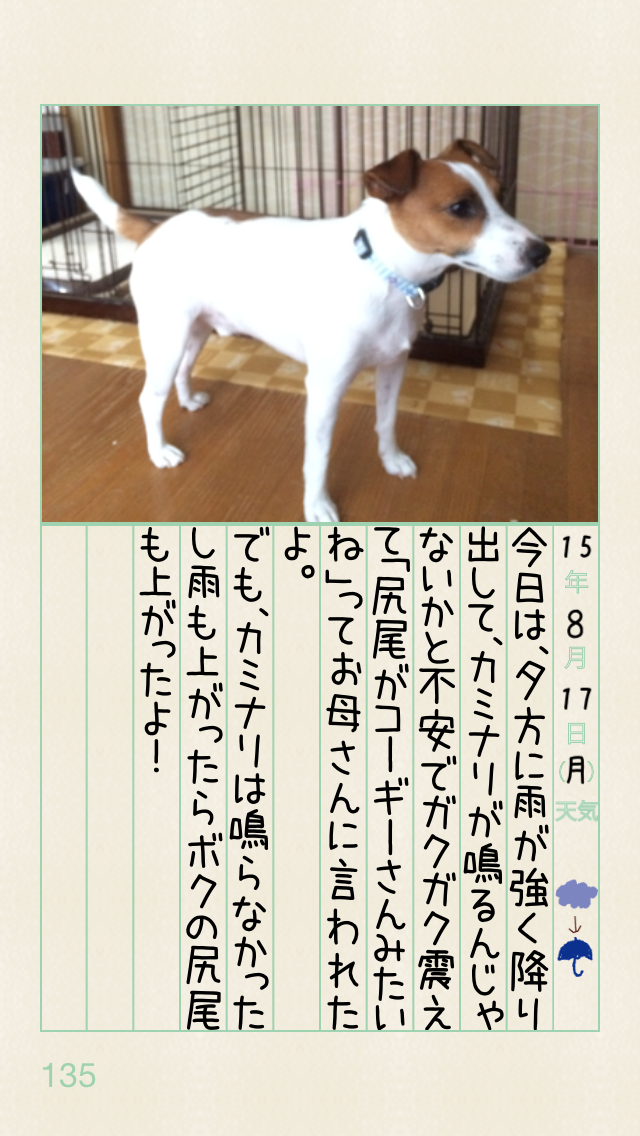 15年8月17日(月)天気
今日は、夕方に雨が強く降り
出して、カミナリが鳴るんじゃ
ないかと不安でガクガク震え
て「尻尾がコーギーさんみたい
ね」ってお母さんに言われた
よ。
でも、カミナリは鳴らなかった
し雨も上がったらボクの尻尾
も上がったよ！
135